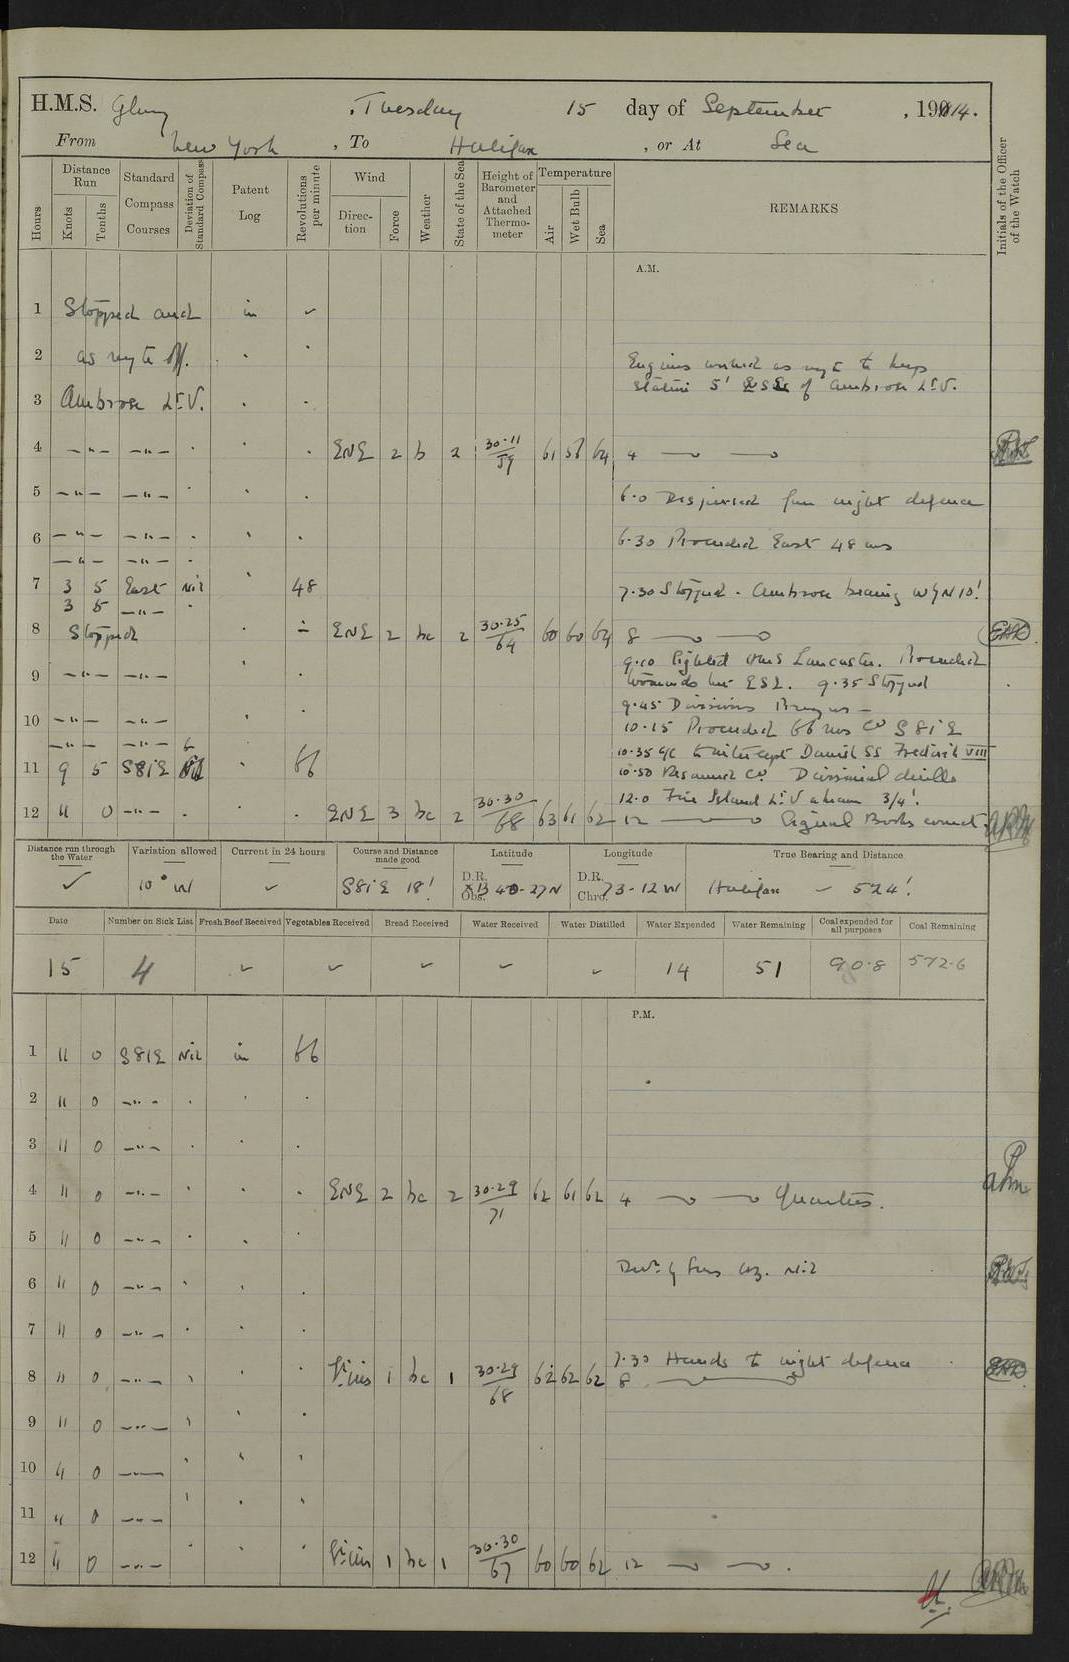 H.M.S. Glory , Tuesday 15 day of September , 1914.
From New York , To Halifax , or At Sea
Hours
Distance Run
Knots
Tenths
Standard Compass Courses
Deviation of Standard Compass
Patent Log
Revolutions per minute
Wind
Direction
Force
Weather
State of the Sea
Height of Barometer and Attached Thermometer
Temperature
Air
Wet Bulb
Sea
REMARKS
Initials of the Officer of the Watch
A.M.
1 Stopped and in ✓
2 as reqte off.
Engines worked as reqte to keep
station 5' ESE of Ambrose Lt. V.
3 Ambrose Lt. V.
4 —"— —"— ENE 2 b 2 30·11/59 61 58 64 4
5 —"— —"—
6·0 Dispersed from night defence
6 —"— —"—
6·30 Proceeded East 48 revs
—"— —"—
7 3 5 East Nil 48
7·30 Stopped. Ambrose bearing W by N 10'.
3 5 —"—
8 Stopped ENE 2 bc 2 30·25/64 60 60 64 8
9·10 Sighted HMS Lancaster. Proceeded
9 —"— —"— towards her ESE. 9·35 Stopped
9·45 Divisions Prayers —
10 —"— —"— 10·15 Proceeded 66 revs Co S81E
—"— —"— 10·35 a/c to intercept Danish SS Frederik VIII
11 9 5 S81E Nil 66 10·50 Resumed Co. Divisional drills
12·0 Fire Island Lt. V abeam 3/4'.
12 11 0 —"— ENE 3 bc 2 30·30/68 63 61 62 12 Signal Books correct.
Distance run through the Water
Variation allowed
Current in 24 hours
Course and Distance made good
Latitude
Longitude
True Bearing and Distance
✓ 10° W ✓ S81E 18' D.R. Obs. 40-27N D.R. Chro. 73-12W Halifax — 524'.
Date
Number on Sick List
Fresh Beef Received
Vegetables Received
Bread Received
Water Received
Water Distilled
Water Expended
Water Remaining
Coal expended for all purposes
Coal Remaining
15 4 ✓ ✓ ✓ ✓ ✓ 14 51 90·8 572·6
P.M.
1 11 0 S81E Nil in 66
2 11 0 —"—
3 11 0 —"—
4 11 0 —"— ENE 2 bc 2 30·29/71 62 61 62 4 Quarters.
5 11 0 —"—
6 11 0 —"— Nil
7 11 0 —"—
7·30 Hands to night defence
8 11 0 —"— 1 bc 1 30·29/68 62 62 62 8
9 11 0 —"—
10 11 0 —"—
11 11 0 —"—
12 11 0 —"— 1 bc 1 30·30/67 60 60 62 12